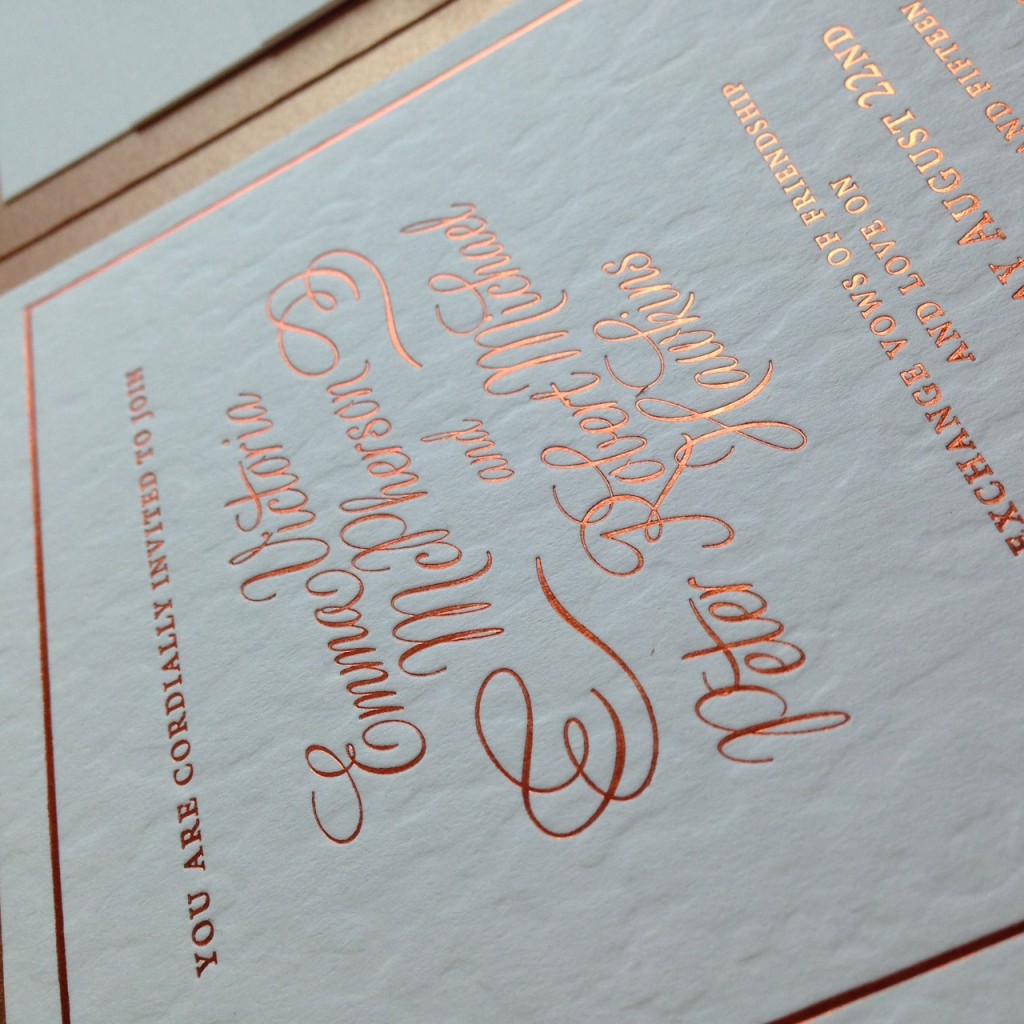 YOU ARE CORDIALLY INVITED TO JOIN
Emma Victoria
McPherson
and
&
Peter Robert Michael
Hawkins
EXCHANGE VOWS OF FRIENDSHIP
AND LOVE ON
AUGUST 22ND
AND FIFTEEN